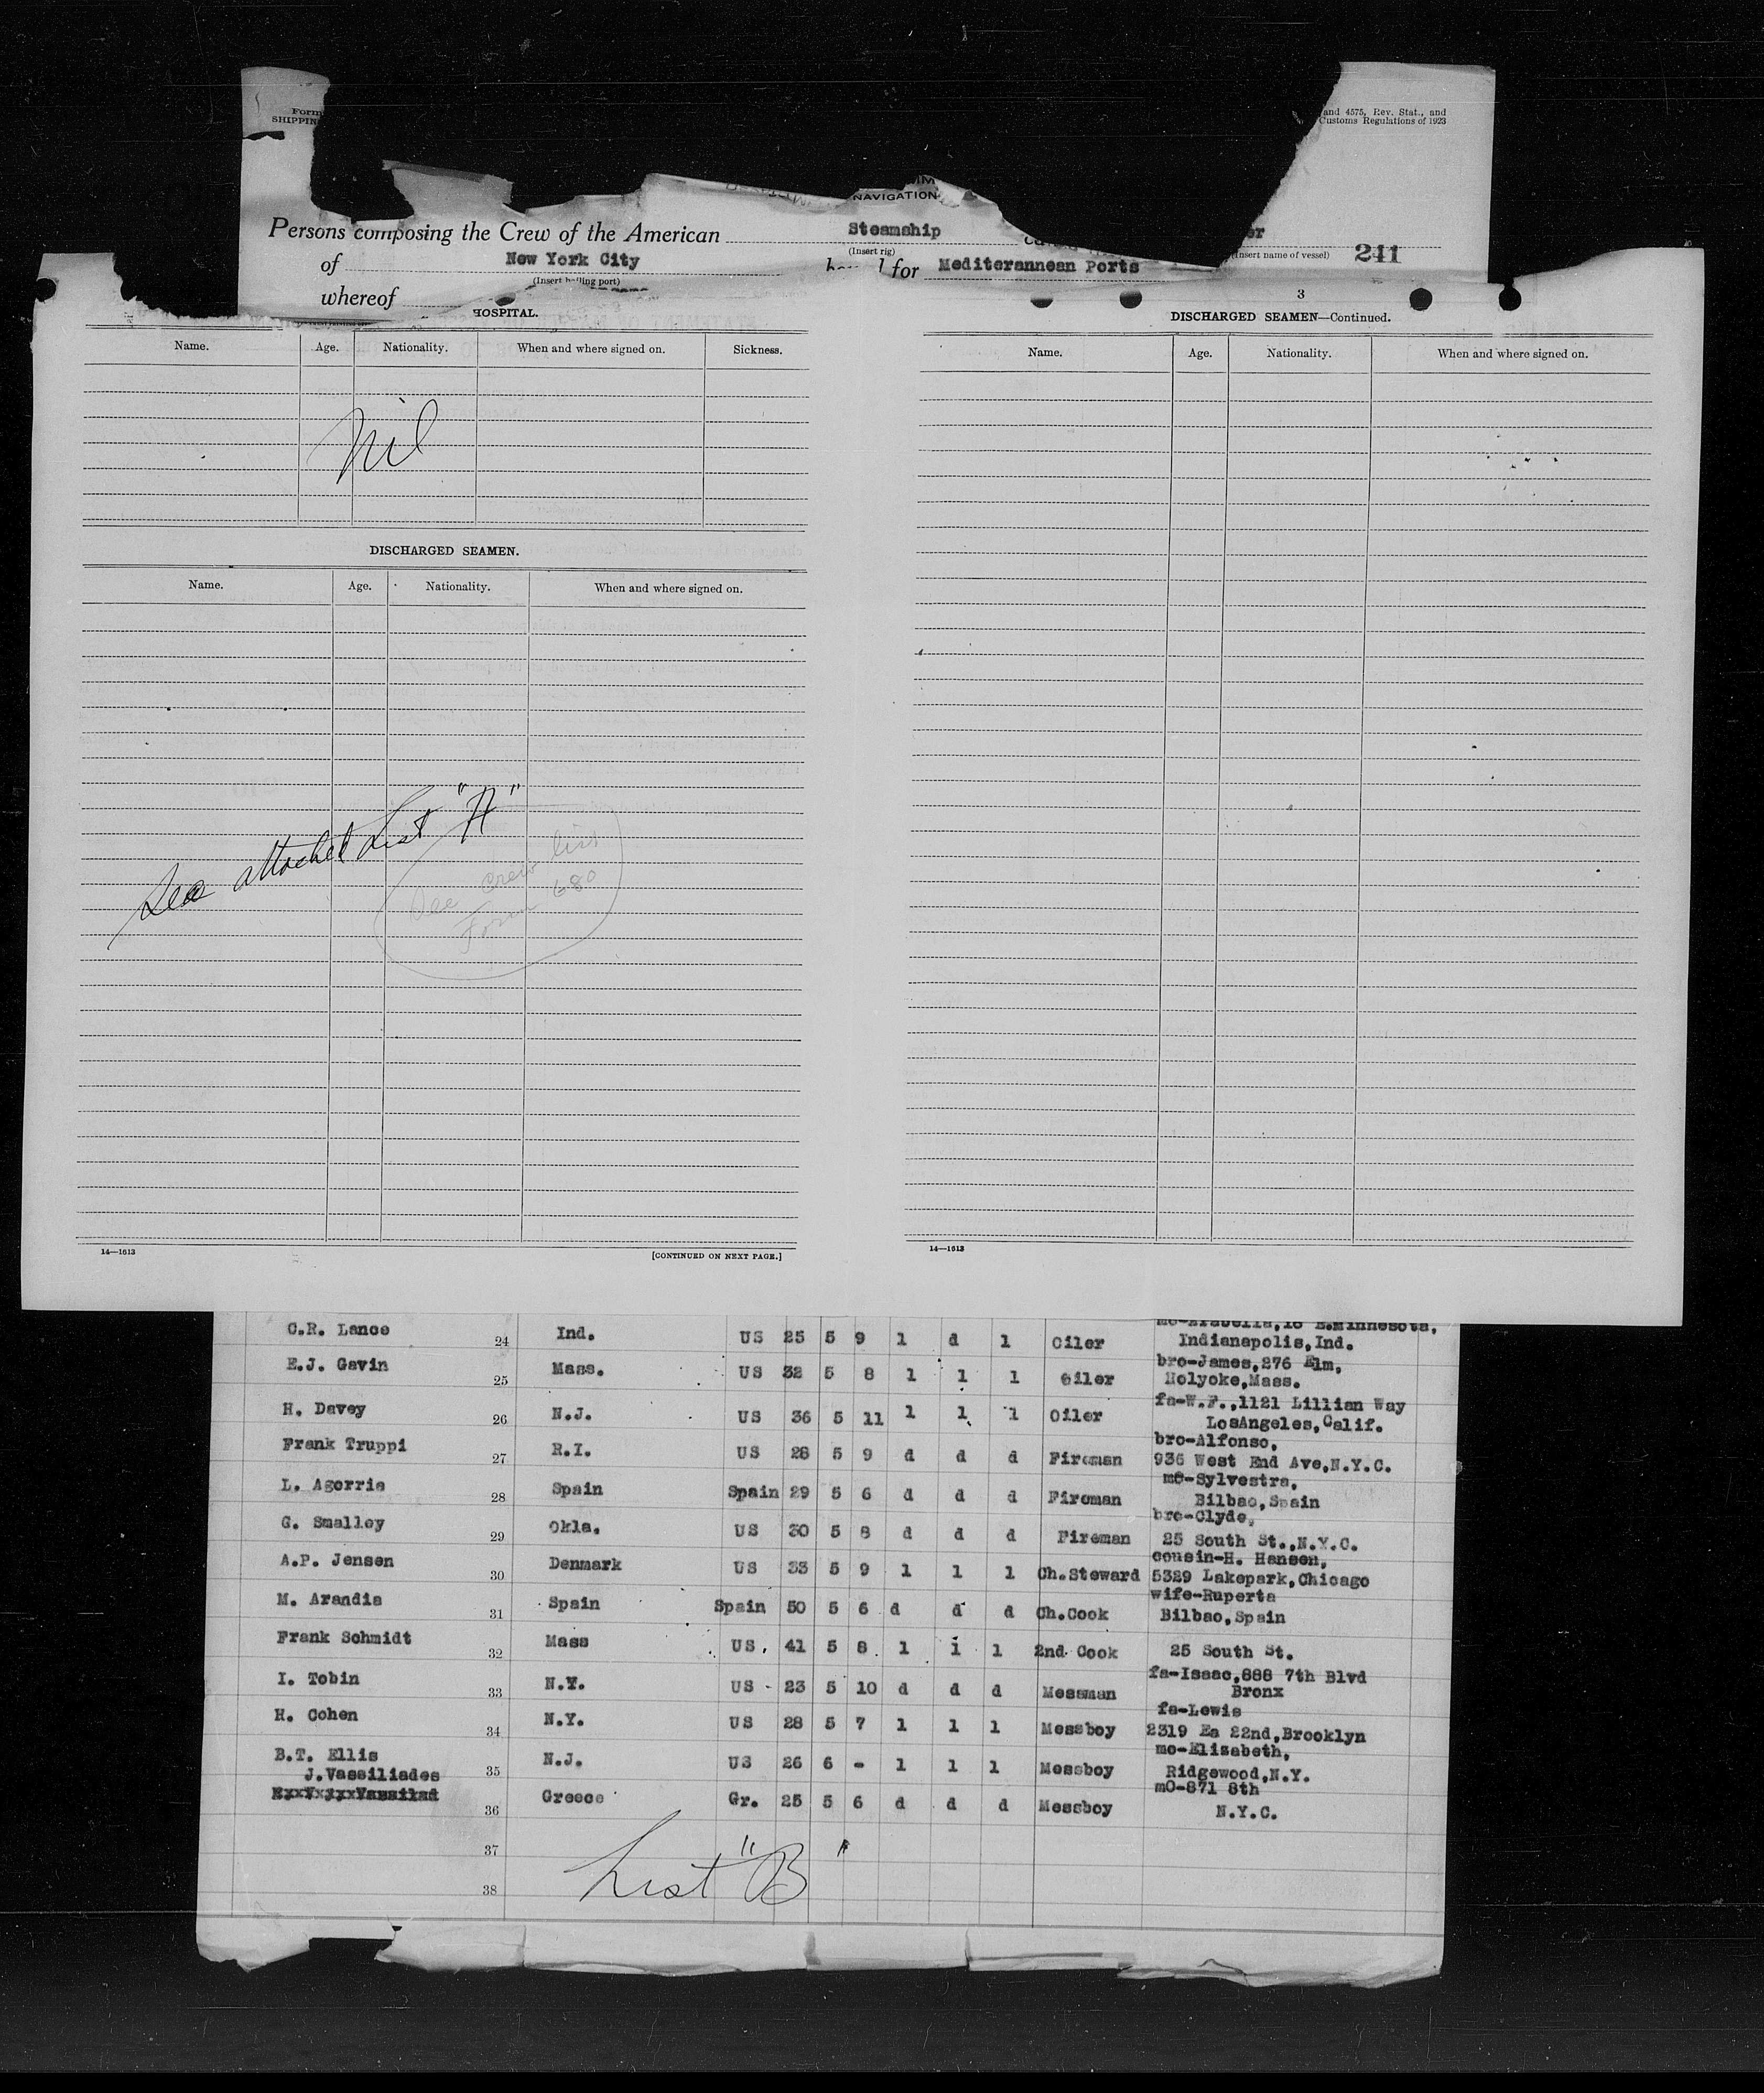 Form
SHIPPIN
and 4575, Rev. Stat., and
Customs Regulations of 1923
NAVIGATION
Persons composing the Crew of the American Steamship
(Insert rig)
(Insert name of vessel) 241
of New York City for Mediterannean Ports
whereof
HOSPITAL.
Name. Age. Nationality. When and where signed on. Sickness.
Nil
DISCHARGED SEAMEN.
Name. Age. Nationality. When and where signed on.
See attached List "A"
See crew list
Form 680
14—1613 [CONTINUED ON NEXT PAGE.]
3
DISCHARGED SEAMEN—Continued.
Name. Age. Nationality. When and where signed on.
14—1613
C.R. Lance 24 Ind. US 25 5 9 1 d 1 Oiler Indianapolis,Ind.
E.J. Gavin 25 Mass. US 32 5 8 1 1 1 Oiler bro-James,276 Elm,
Holyoke,Mass.
H. Davey 26 N.J. US 36 5 11 1 1 1 Oiler fa-W.F.,1121 Lillian Way
LosAngeles,Calif.
Frank Truppi 27 R.I. US 28 5 9 d d d Fireman bro-Alfonso,
936 West End Ave,N.Y.C.
L. Agorria 28 Spain Spain 29 5 6 d d d Fireman mO-Sylvestra,
Bilbao,Spain
G. Smalley 29 Okla. US 30 5 8 d d d Fireman bro-Clyde,
25 South St.,N.Y.C.
A.P. Jensen 30 Denmark US 33 5 9 1 1 1 Ch.Steward cousin-H. Hansen,
5329 Lakepark,Chicago
M. Arandia 31 Spain Spain 50 5 6 d d d Ch.Cook wife-Ruperta
Bilbao,Spain
Frank Schmidt 32 Mass US. 41 5 8 1 1 1 2nd Cook 25 South St.
I. Tobin 33 N.Y. US 23 5 10 d d d Messman fa-Isaac,888 7th Blvd
Bronx
H. Cohen 34 N.Y. US 28 5 7 1 1 1 Messboy fa-Lewis
2319 Ea 22nd,Brooklyn
B.T. Ellis 35 N.J. US 26 6 - 1 1 1 Messboy mo-Elizabeth,
Ridgewood,N.Y.
J.Vassiliades
36 Greece Gr. 25 5 6 d d d Messboy mO-871 8th
N.Y.C.
37
38
List "B"